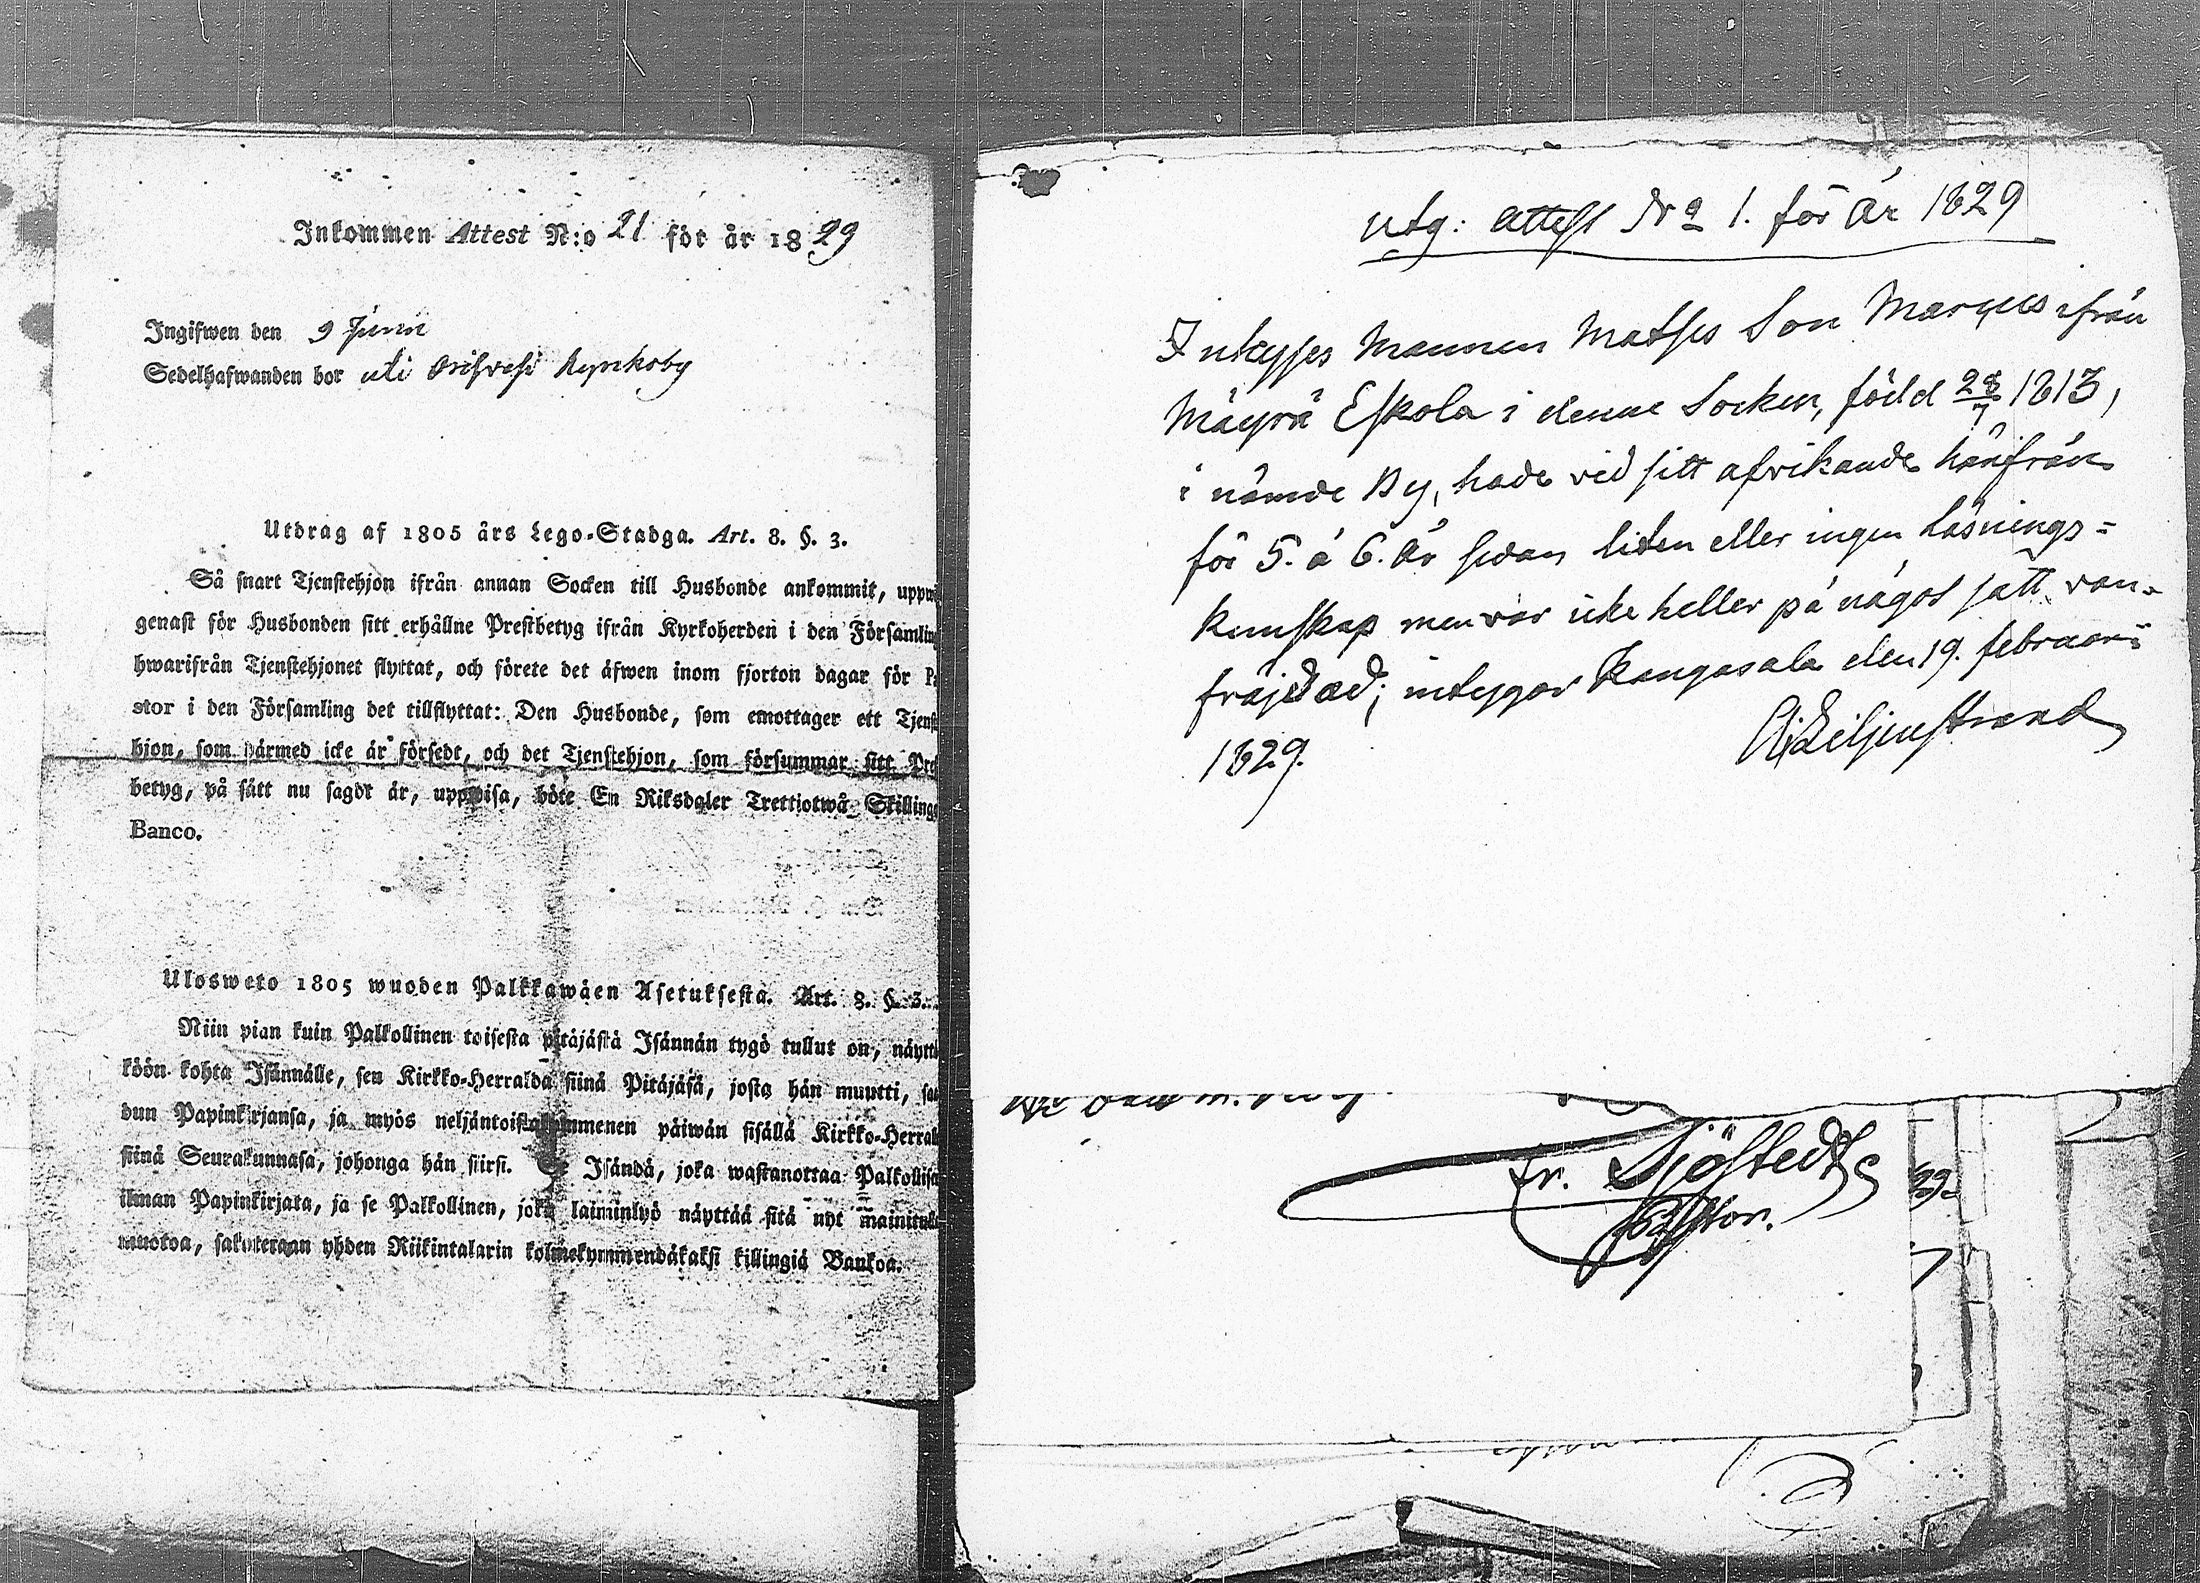 Inkommen Attest N:o 21 för år 1829
Ingifwen den 9 Junii
Sedelhafwanden bor uti Orihvesi Kyrkoby
Utdrag af 1805 års Lego-Stadga. Art. 8. §. 3.
Så snart Tjenstehjon ifrån annan Socken till Husbonde ankommit, uppwi
genast för Husbonden sitt erhållne Prestbetyg ifrån Kyrkoherden i den Församling
hwarifrån Tjenstehjonet flyttat, och förete det äfwen inom fjorton dagar för Pa
stor i den Församling det tillflyttat: Den Husbonde, som emottager ett Tjenst
hjon, som härmed icke är försedt, och det Tjenstehjon, som försummar sitt Pre
betyg, på sätt nu sagdt är, uppwisa, böte En Riksdaler Trettiotwå Skillinga
Banco.
Ulosweto 1805 wuoden Palkkawäen Asetuksesta. Art. 8. §. 3.
Niin pian kuin Palkollinen toisesta pitäjästä Isännän tygö tullut on, näyttä
köön kohta Isännälle, sen Kirkko-Herralda siinä Pitäjäsä, josta hän muutti, saa
dun Papinkirjansa, ja myös neljäntoistakymmenen päiwän sisällä Kirkko-Herral
siinä Seurakunnasa, johonga hän siirsi. Se Isändä, joka wastanottaa Palkollisen
ilman Papinkirjata, ja se Palkollinen, joka laiminlyö näyttää sitä nyt mainitulla
muotoa, sakotetaan yhden Riikintalarin kolmekymmendäkaksi killingiä Bankoa.
utg: attest No 1. för År 1829
Inhyses Mannen Matts Son Marcus ifrån
Mäyrä Eskola i denne Socken, född 28/7 1813,
i nämde By, hade vid sitt afvikande härifrån
för 5. à 6. År sedan liten eller ingen Läsnings=
kunskap men var icke heller på något sätt van-
fräjdad; intygar Kangasala den 19. februarii
1829. Liljenstrand
Fr. Sjöstedt
Pastor.